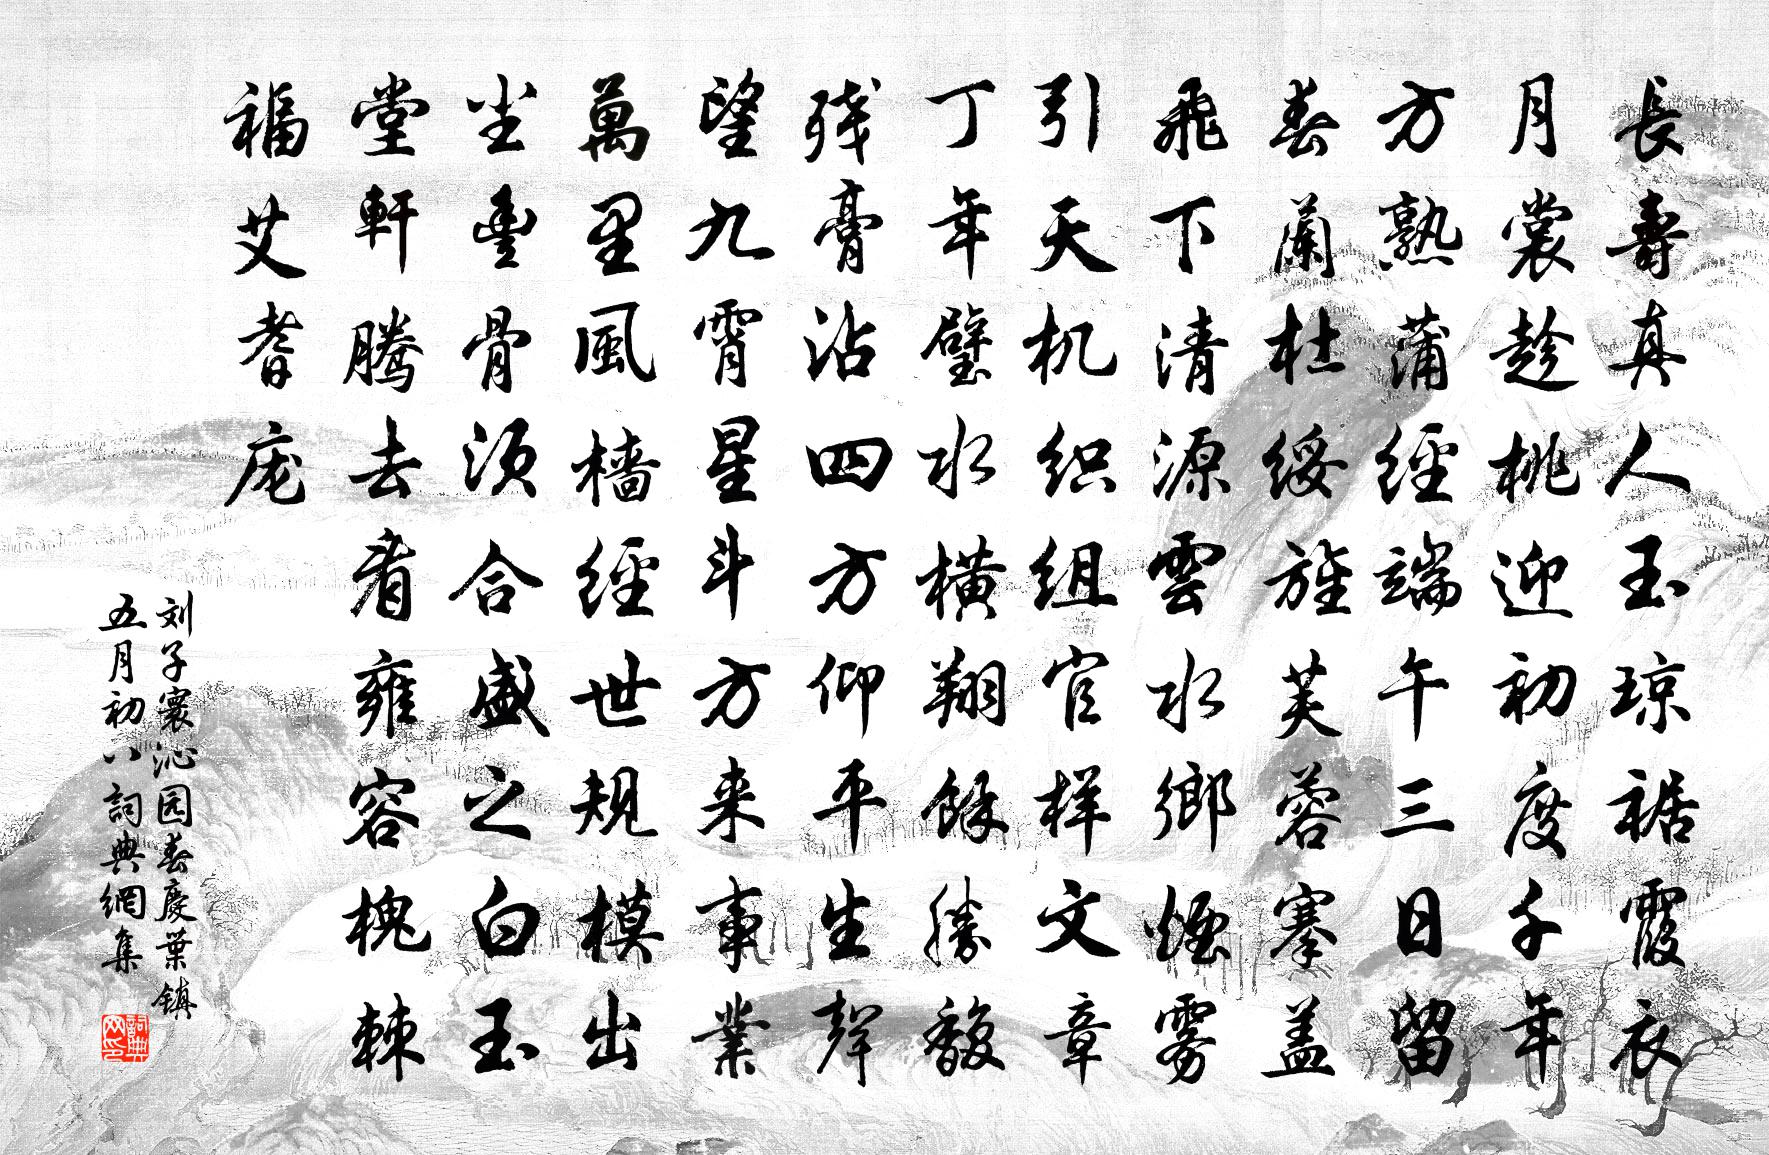 長壽真人玉琼裾霞衣
月裳趁桃迎初度千年
方熟蒲經端午三日留
春蘭杜綬旌芙蓉搴盖
飛下清源雲水鄉煙雾
引天机织组官样文章
丁年璧水横翔餘勝馥
残膏沾四方仰平生聲
望九霄星斗方来事業
萬里風樯經世規模出
坐豐骨须合盛之白玉
堂軒腾去看雍容槐棘
福艾耆庞
刘子寰沁园春慶葉镇
五月初八詞典網集
詞典网印